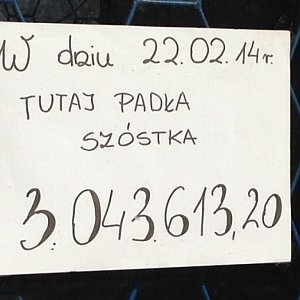 W dniu 22.02.14r.
TUTAJ PADŁA
SZÓSTKA
3.043.613,20